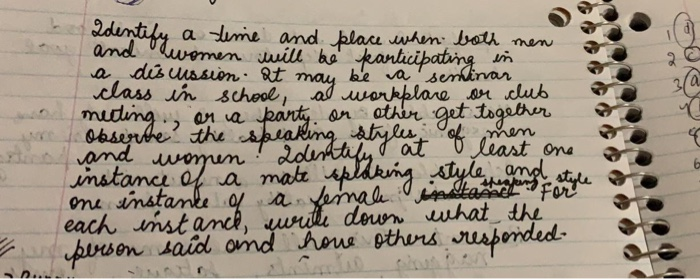 Identify a time and place when both men
and women will be participating in
a discussion. It may be a seminar
class in school, a workplace or club
meeting, or a party or other get together
observe the speaking styles of men
and women. Identify at least one
instance of a mate speaking style and
one instance of a female speaking style For
each instance, write down what the
person said and how others responded.
1 d
2 c
3 a